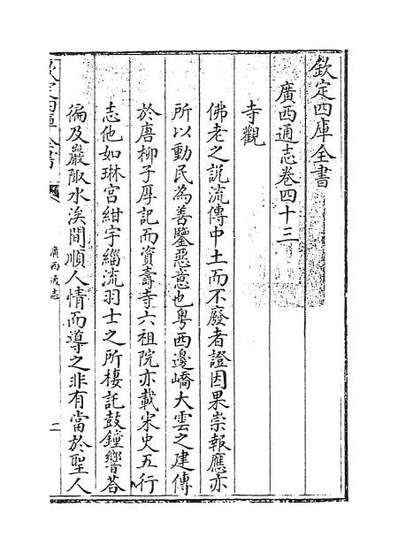 欽定四庫全書
廣西通志卷四十三
寺觀
佛老之説流傳中土而不廢者證因果崇報應亦
所以動民為善鑒惡意也粤西邊嶠大雲之建傳
於唐柳子厚記而資壽寺六祖院亦載宋史五行
志他如琳宫紺宇緇流羽士之所棲託鼓鐘響荅
徧及巖陬水涘間順人情而導之非有當於聖人
欽定四庫全書
廣西通志